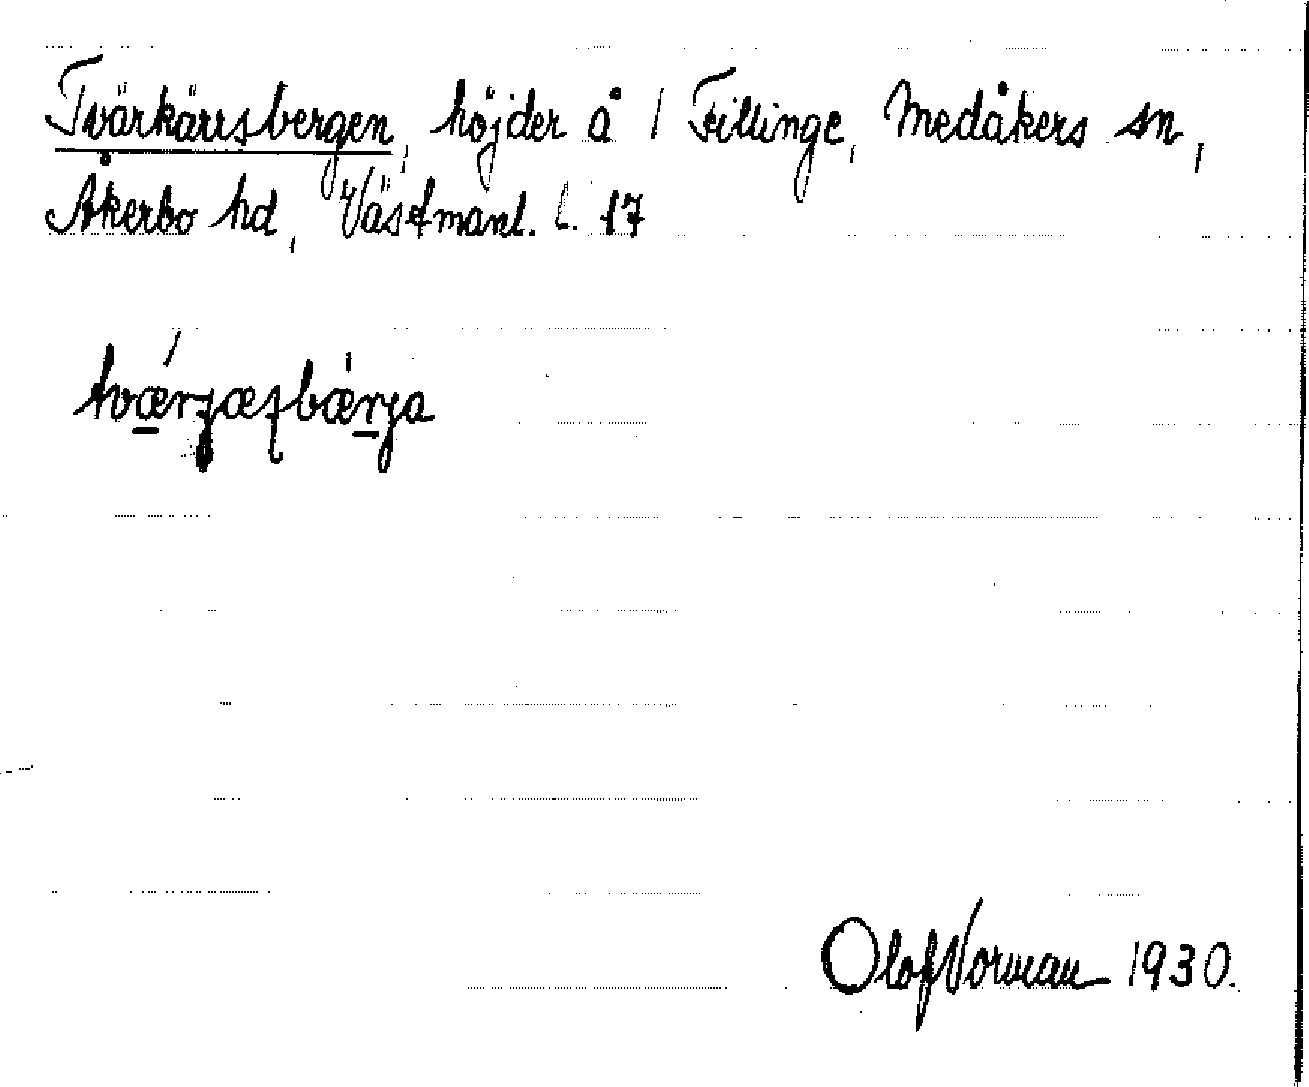 Tvärkärrsbergen, höjder å / Fillinge, Medåkers sn,
Åkerbo hd, Västmanl. L. 17
Olof Norman 1930.